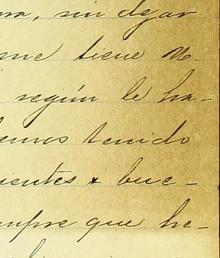 ra, sin dejar
me tiene N.
según le ha-
hemos tenido
uentes & bue-
empre que he-